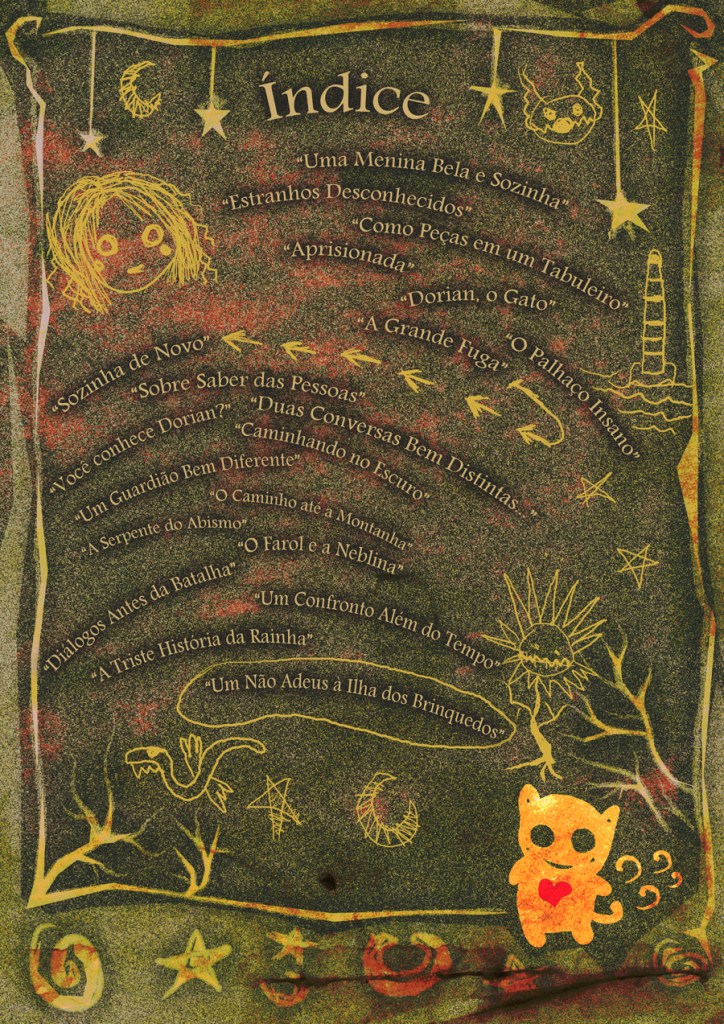 Índice
“Uma Menina Bela e Sozinha”
“Estranhos Desconhecidos”
“Como Peças em um Tabuleiro”
“Aprisionada”
“Dorian, o Gato”
“A Grande Fuga”
“O Palhaço Insano”
“Sozinha de Novo”
“Sobre Saber das Pessoas”
“Você conhece Dorian?”
“Duas Conversas Bem Distintas...”
“Caminhando no Escuro”
“Um Guardião Bem Diferente”
“O Caminho até a Montanha”
“A Serpente do Abismo”
“O Farol e a Neblina”
“Diálogos Antes da Batalha”
“Um Confronto Além do Tempo”
“A Triste História da Rainha”
“Um Não Adeus à Ilha dos Brinquedos”